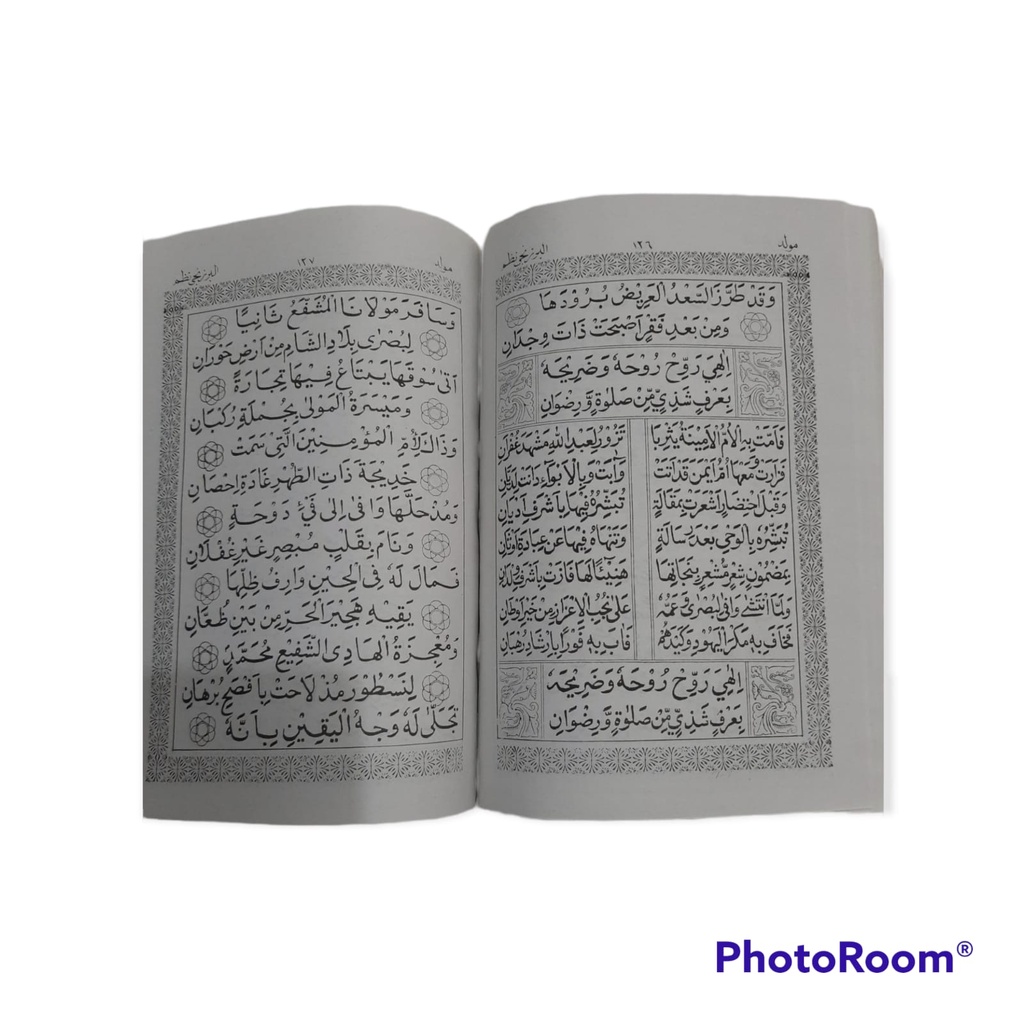 مولد ١٢٦ البرزنجي نظم
وَقَدْ طَرَّزَ السَّعْدُ الْعَرِيْضُ بُرُوْدَهَا
وَمِنْ بَعْدِ فَقْرٍ اَصْبَحَتْ ذَاتَ وِجْدَانِ
اِلٰهِيْ رَوِّحْ رُوْحَهٗ وَضَرِيْحَهٗ
بِعَرْفٍ شَذِيٍّ مِّنْ صَلٰوةٍ وَّرِضْوَانِ
قَامَتْ بِهِ الْاُمُّ الْاَمِيْنَةُ يَثْرِبًا تَزُوْرُ لِعَبْدِ اللهِ مَشْهَدَ غُفْرَانِ
فَزَارَتْ وَمَعْهَا اُمُّ اَيْمَنَ قَدْ اَتَتْ وَاٰبَتْ وَبِالْاَبْوَاءِ دَانَتْ لِدَيَّانِ
وَقَبْلَ احْتِضَارٍ اَشْعَرَتْ بِمَقَالَةٍ تُبَشِّرُهٗ فِيْهَا بِاَشْرَفِ اَدْيَانِ
تُبَشِّرُهٗ بِالْوَحْيِ بَعْدَ رِسَالَةٍ وَتَنْهَاهُ فِيْهَا عَنْ عِبَادَةِ اَوْثَانِ
بِمَضْمُوْنِ شِعْرٍ مُّشْعِرٍ بِنَجَاتِهَا هَنِيْئًا لَهَا فَازَتْ بِاَشْرَفِ وِلْدَانِ
وَلَمَّا انْتَشٰى وَافٰى لِبُصْرٰى وَعَمُّهٗ عَلٰى نُجُبِ الْاِعْزَازِ مِنْ خَيْرِ اَوْطَانِ
فَخَافَ بِهٖ مَكْرَ الْيَهُوْدِ وَكَيْدَهُمْ فَاٰبَ بِهٖ فَوْرًا بِاِرْشَادِ رُهْبَانِ
اِلٰهِيْ رَوِّحْ رُوْحَهٗ وَضَرِيْحَهٗ
بِعَرْفٍ شَذِيٍّ مِّنْ صَلٰوةٍ وَّرِضْوَانِ
مولد ١٢٧ البرزنجي نظم
وَسَافَرَ مَوْلَانَا الْمُشَفَّعُ ثَانِيًا
لِبُصْرٰى بِلَادِ الشَّامِ مِنْ اَرْضِ حَوْرَانِ
اَتٰى سُوْقَهَا يَبْتَاعُ فِيْهَا تِجَارَةً
وَمَيْسَرَةُ الْمَوْلٰى بِجُمْلَةِ رُكْبَانِ
وَذَاكَ لِاُمِّ الْمُؤْمِنِيْنَ الَّتِيْ سَمَتْ
خَدِيْجَةَ ذَاتِ الطُّهْرِ غَادَةِ اِحْصَانِ
وَمُذْ حَلَّهَا وَافٰى اِلٰى فَيْءِ دَوْحَةٍ
وَنَامَ بِقَلْبٍ مُبْصِرٍ غَيْرِ غَفْلَانِ
فَمَالَ لَهٗ فِى الْحِيْنِ وَارِفُ ظِلِّهَا
يَقِيْهِ هَجِيْرَ الْحَرِّ مِنْ بَيْنِ ظُعَّانِ
وَمُعْجِزَةُ الْهَادِى الشَّفِيْعِ مُحَمَّدٍ
لِنَسْطُوْرَ مُذْ لَاحَتْ بِاَفْصَحِ بُرْهَانِ
تَجَلّٰى لَهٗ وَجْهُ الْيَقِيْنِ بِاَنَّهٗ
PhotoRoom®